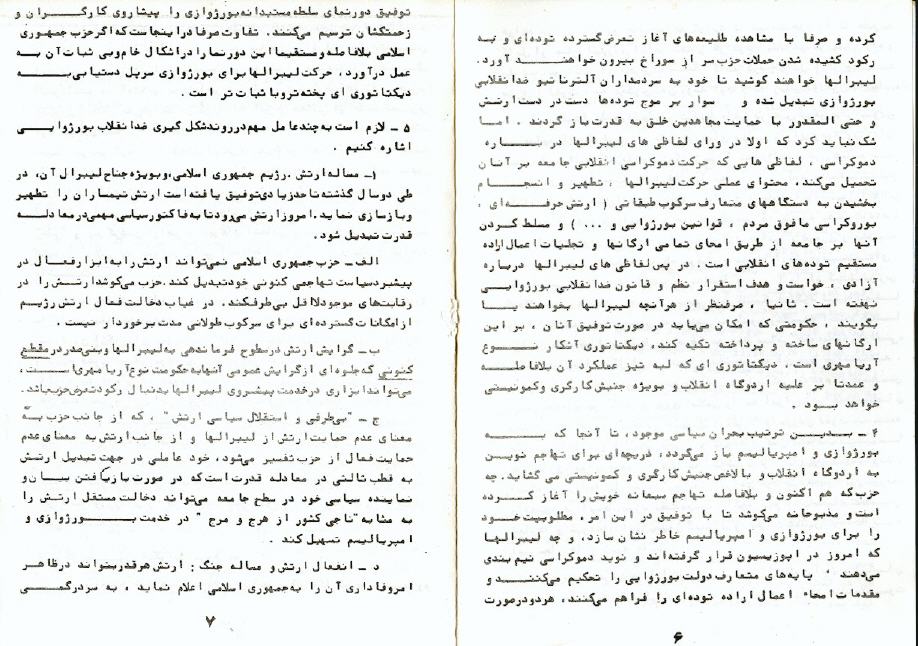 کرده و صرفا با مشاهده طلیعه‌های آغاز تعرض گسترده توده‌ای و به
رکود کشیده شدن حملات حزب سر از سوراخ بیرون خواهند آورد.
لیبرالها خواهند کوشید تا خود به سردمداران آلترناتیو ضدانقلابی
بورژوازی تبدیل شده و سوار بر موج توده‌ها دست در دست ارتش
و حتی المقدور با حمایت مجاهدین خلق به قدرت باز گردند . اما
شک نباید کرد که اولا در ورای لفاظی های لیبرالها در باره
دموکراسی ، لفاظی هایی که حرکت دموکراسی انقلابی جامعه بر آنان
تحمیل می‌کند، محتوای عملی حرکت لیبرالها ، تطهیر و انسجام
بخشیدن به دستگاههای متعارف سرکوب طبقاتی ( ارتش حرفه‌ای ،
بوروکراسی مافوق مردم ، قوانین بورژوایی و ... ) و مسلط کردن
آنها بر جامعه از طریق امحای تمامی ارگانها و تجلیات اعمال اراده
مستقیم توده‌های انقلابی است . در پس لفاظی های لیبرالها درباره
آزادی ، خواست و هدف استقرار نظم و قانون ضدانقلابی بورژوایی
نهفته است . ثانیا ، صرفنظر از هرآنچه لیبرالها بخواهند یا
بگویند ، حکومتی که امکان می‌یابد در صورت توفیق آنان ، بر این
ارگانهای ساخته و پرداخته تکیه کند، دیکتاتوری آشکار نوع
آریامهری است . دیکتاتوری ای که لبه تیز عملکرد آن بلافاصله
و عمدتا بر علیه اردوگاه انقلاب و بویژه جنبش کارگری و کمونیستی
خواهد بود .
۴ ـ بدین ترتیب بحران سیاسی موجود، تا آنجا که به
بورژوازی و امپریالیسم باز می‌گردد، دریچه‌ای برای تهاجم نوین
به اردوگاه انقلاب و بالاخص جنبش کارگری و کمونیستی می گشاید. چه
حزب که هم اکنون و بلافاصله تهاجم سبعانه خویش را آغاز کرده
است و مذبوحانه می‌کوشد تا با توفیق در این امر، مطلوبیت خود
را برای بورژوازی و امپریالیسم خاطر نشان سازد، و چه لیبرالها
که امروز در اپوزیسیون قرار گرفته‌اند و نوید دموکراسی نیم بندی
می‌دهند پایه‌های متعارف دولت بورژوایی را تحکیم می‌کنند و
مقدمات امحاء اعمال اراده توده‌ای را فراهم می‌کنند، هردو درصورت
۶
توفیق دورنمای سلطه مستبدانه بورژوازی را پیشاروی کارگران و
زحمتکشان ترسیم می‌کنند. تفاوت صرفا در اینجاست که اگر حزب جمهوری
اسلامی بلافاصله و مستقیما این دورنما را در اشکال خام و بی ثبات آن به
عمل درآورد، حرکت لیبرالها برای بورژوازی سرپل دستیابی به
دیکتاتوری ای پخته‌تر و با ثبات تر است .
۵ ـ لازم است به چند عامل مهم در روند شکل گیری ضدانقلاب بورژوایی
اشاره کنیم .
۱ـ مساله ارتش . رژیم جمهوری اسلامی، و بویژه جناح لیبرال آن، در
طی دو سال گذشته تا حد زیادی توفیق یافته است ارتش تیمساران را تطهیر
و بازسازی نماید. امروز ارتش می‌رود تا به فاکتور سیاسی مهمی در معادله
قدرت تبدیل شود.
الف ـ حزب جمهوری اسلامی نمی‌تواند ارتش را به ابزار فعال در
پیشبرد سیاست تهاجمی کنونی خود تبدیل کند. حزب می‌کوشد ارتش را در
رقابت‌های موجود لااقل بی‌طرف کند. در غیاب دخالت فعال ارتش رژیم
از امکانات گسترده‌ای برای سرکوب طولانی مدت برخوردار نیست .
ب ـ گرایش ارتش در سطوح فرماندهی به لیبرالها و بنی‌صدر در مقطع
کنونی که جلوه‌ای از گرایش عمومی آنها به حکومت نوع آریامهری است ،
می‌تواند ابزاری در خدمت پیشروی لیبرالها بدنبال رکود تعرض حزب باشد.
ج ـ "بی‌طرفی و استقلال سیاسی ارتش" ، که از جانب حزب به
معنای عدم حمایت ارتش از لیبرالها و از جانب ارتش به معنای عدم
حمایت فعال از حزب تفسیر می‌شود، خود عاملی در جهت تبدیل ارتش
به قطب ثالثی در معادله قدرت است که در صورت بازیافتن بیان و
نماینده سیاسی خود در سطح جامعه می‌تواند دخالت مستقل ارتش را
به مثابه "ناجی کشور از هرج و مرج " در خدمت بورژوازی و
امپریالیسم تسهیل کند .
د ـ انفعال ارتش و مساله جنگ : ارتش هر قدر بتواند در ظاهر
امر وفاداری آن را به جمهوری اسلامی اعلام نماید ، به سردرگمی
۷